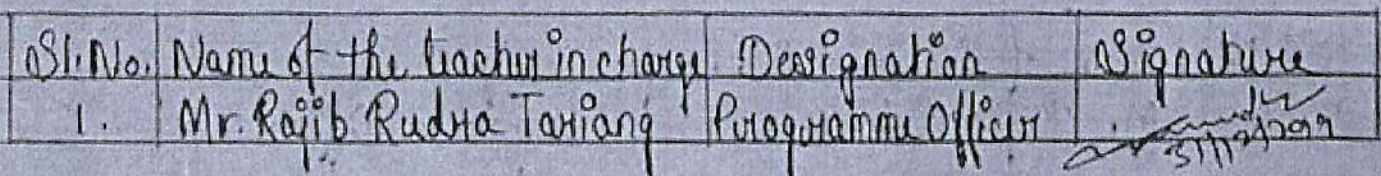 Sl. No. Name of the teacher in charge Designation Signature
1. Mr. Rajib Rudra Tariang Programme Officer